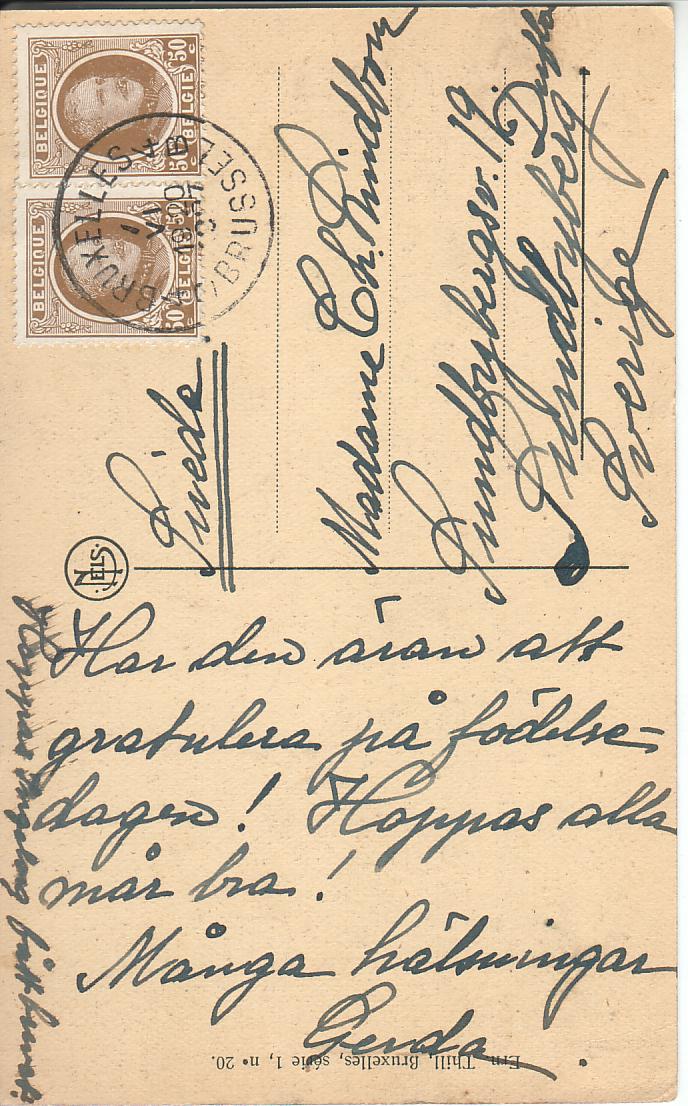 BELGIQUE 50 C 50 C BELGIË
BELGIQUE 50 C BELGIË
BRUXELLES
BRUSSEL
Suède
Madame Ch. Lindbom
Sundbybergsv. 19
Sundbyberg
Sverige
NELS
Har den äran att
gratulera på födelse-
dagen! Hoppas alla
mår bra!
Många hälsningar
Gerda
Hoppas
Ern. Thill, Bruxelles, série 1, n° 20.